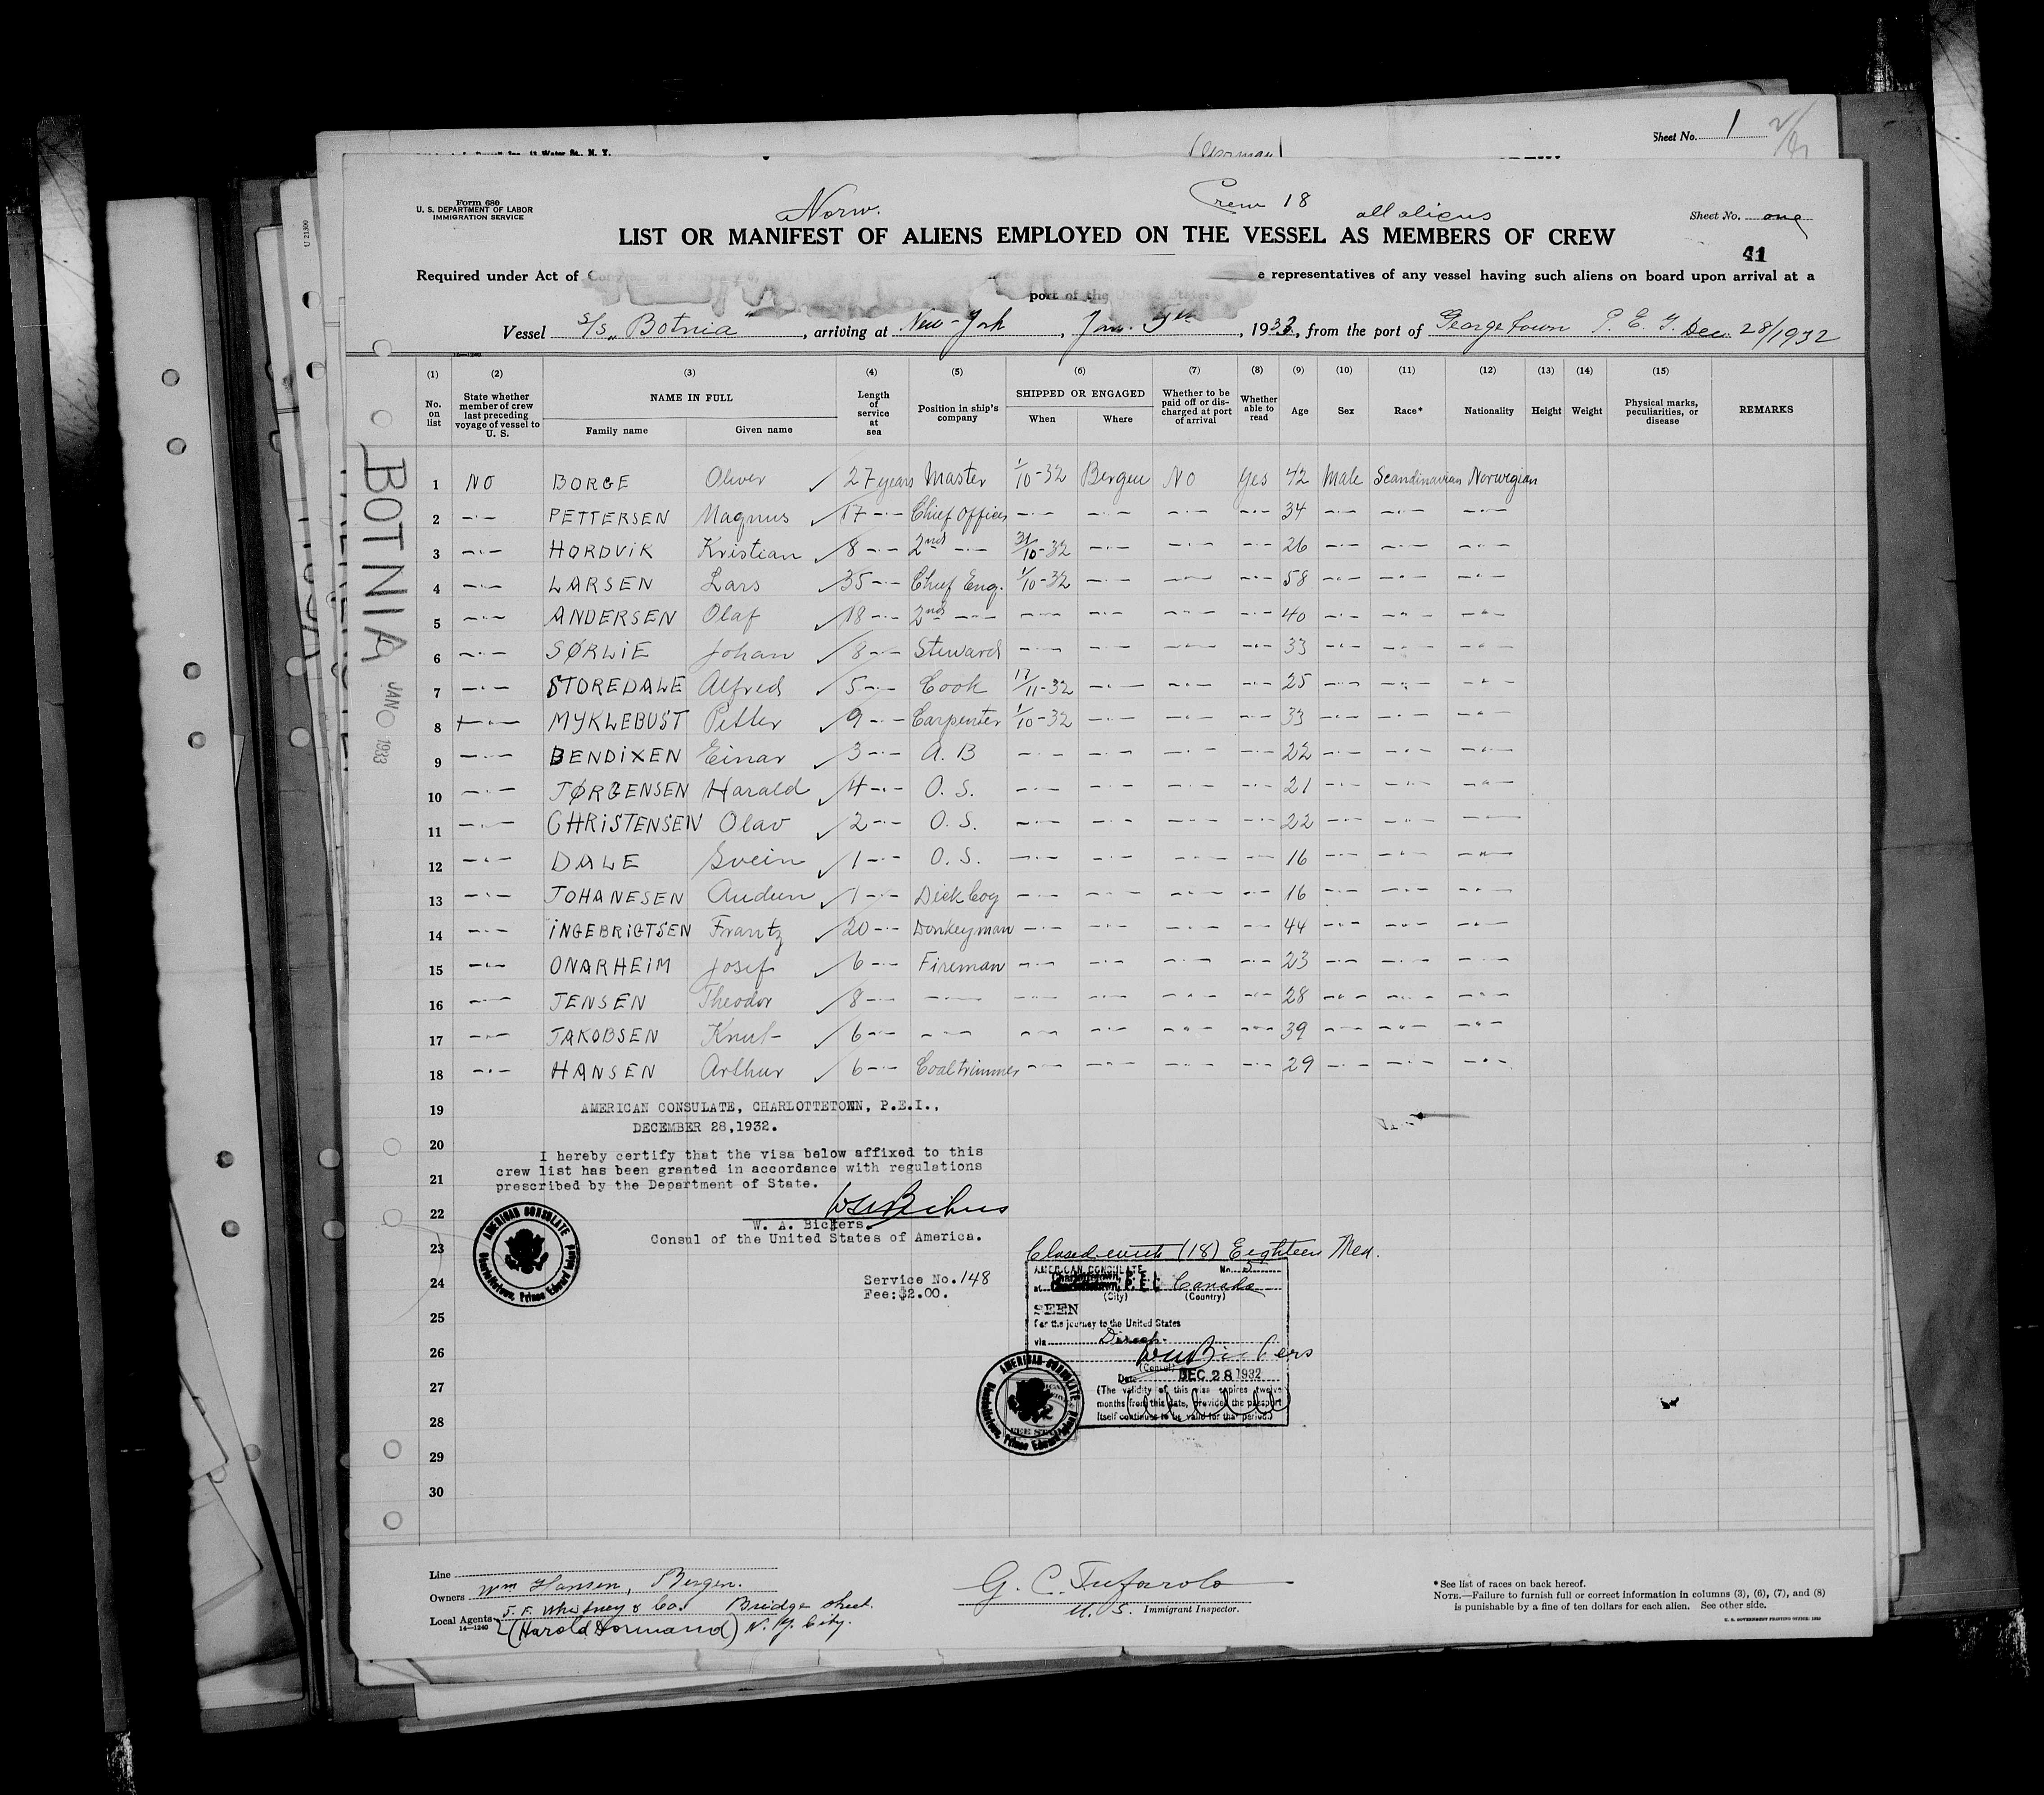 Sheet No. 1
Form 680
U. S. DEPARTMENT OF LABOR
IMMIGRATION SERVICE
Norw.
Crew 18
all aliens
Sheet No. one
LIST OR MANIFEST OF ALIENS EMPLOYED ON THE VESSEL AS MEMBERS OF CREW
41
Required under Act of representatives of any vessel having such aliens on board upon arrival at a
port of the United States
Vessel S/S "Botnia", arriving at New-York, Jan. 5th, 1933, from the port of Georgetown P. E. I. Dec. 28/1932
(1) (2) (3) (4) (5) (6) (7) (8) (9) (10) (11) (12) (13) (14) (15)
No. on list
State whether member of crew last preceding voyage of vessel to U. S.
NAME IN FULL
Family name Given name
Length of service at sea
Position in ship's company
SHIPPED OR ENGAGED
When Where
Whether to be paid off or discharged at port of arrival
Whether able to read
Age Sex Race* Nationality Height Weight
Physical marks, peculiarities, or disease
REMARKS
BOTNIA JAN 1933
1 NO BORGE Oliver ✓ 27 years Master 1/10-32 Bergen NO Yes 42 Male Scandinavian Norwegian
2 -·- PETTERSEN Magnus ✓ 17 -·- Chief Officer -·- -·- -·- -·- 34 -·- -·- -·-
3 -·- HORDVIK Kristian ✓ 8 -·- 2nd -·- 31/10-32 -·- -·- -·- 26 -·- -·- -·-
4 -·- LARSEN Lars ✓ 35 -·- Chief Eng. 1/10-32 -·- -·- -·- 58 -·- -·- -·-
5 -·- ANDERSEN Olaf ✓ 18 -·- 2nd -·- -·- -·- -·- -·- 40 -·- -·- -·-
6 -·- SØRLIE Johan ✓ 8 -·- Steward -·- -·- -·- -·- 33 -·- -·- -·-
7 -·- STOREDALE Alfred ✓ 5 -·- Cook 17/11-32 -·- -·- -·- 25 -·- -·- -·-
8 -·- MYKLEBUST Petter ✓ 9 -·- Carpenter 1/10-32 -·- -·- -·- 33 -·- -·- -·-
9 -·- BENDIXEN Einar ✓ 3 -·- A. B -·- -·- -·- -·- 22 -·- -·- -·-
10 -·- JØRGENSEN Harald ✓ 4 -·- O. S. -·- -·- -·- -·- 21 -·- -·- -·-
11 -·- CHRISTENSEN Olav ✓ 2 -·- O. S. -·- -·- -·- -·- 22 -·- -·- -·-
12 -·- DALE Svein ✓ 1 -·- O. S. -·- -·- -·- -·- 16 -·- -·- -·-
13 -·- JOHANESEN Audun ✓ 1 -·- Dick boy -·- -·- -·- -·- 16 -·- -·- -·-
14 -·- INGEBRIGTSEN Frantz ✓ 20 -·- Donkeyman -·- -·- -·- -·- 44 -·- -·- -·-
15 -·- ONARHEIM Josef ✓ 6 -·- Fireman -·- -·- -·- -·- 23 -·- -·- -·-
16 -·- JENSEN Theodor ✓ 8 -·- -·- -·- -·- -·- -·- 28 -·- -·- -·-
17 -·- JAKOBSEN Knut ✓ 6 -·- -·- -·- -·- -·- -·- 39 -·- -·- -·-
18 -·- HANSEN Arthur ✓ 6 -·- Coaltrimmer -·- -·- -·- -·- 29 -·- -·- -·-
19 AMERICAN CONSULATE, CHARLOTTETOWN, P.E.I.,
DECEMBER 28,1932.
20 I hereby certify that the visa below affixed to this
crew list has been granted in accordance with regulations
21 prescribed by the Department of State.
22 W. A. Bickers.
23 Consul of the United States of America.
AMERICAN CONSULATE Charlottetown, Prince Edward Island
Closed with (18) Eighteen Men.
24 Service No. 148
Fee: $2.00.
AMERICAN CONSULATE No. 5
at P. E. I. Canada
(City) (Country)
25 SEEN
For the journey to the United States
via Direct
26
(Consul)
27 Date DEC 28 1932
(The validity of this visa expires twelve
months from this date, provided the passport
28 itself continues to be valid for that period.)
AMERICAN CONSULATE Charlottetown, Prince Edward Island
29
30
Line
Owners Wm Hansen, Bergen.
Local Agents J. F. Whitney & Co. Bridge street.
(Harold Dormand) N. Y. City.
14—1240
G. C. Tufarolo
U. S. Immigrant Inspector.
* See list of races on back hereof.
NOTE.—Failure to furnish full or correct information in columns (3), (6), (7), and (8)
is punishable by a fine of ten dollars for each alien. See other side.